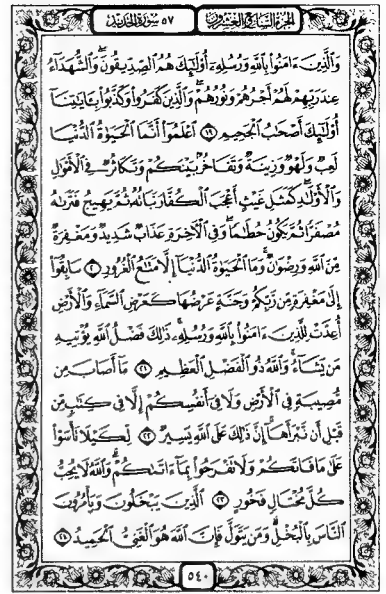 الجزء السابع والعشرون ٥٧ سورة الحديد
وَالَّذِينَ ءَامَنُوا بِاللَّهِ وَرُسُلِهِ أُولَٰئِكَ هُمُ الصِّدِّيقُونَ ۖ وَالشُّهَدَاءُ
عِندَ رَبِّهِمْ لَهُمْ أَجْرُهُمْ وَنُورُهُمْ ۖ وَالَّذِينَ كَفَرُوا وَكَذَّبُوا بِـَٔايَٰتِنَا
أُولَٰئِكَ أَصْحَٰبُ الْجَحِيمِ ١٩ اعْلَمُوا أَنَّمَا الْحَيَوٰةُ الدُّنْيَا
لَعِبٌ وَلَهْوٌ وَزِينَةٌ وَتَفَاخُرٌ بَيْنَكُمْ وَتَكَاثُرٌ فِي الْأَمْوَٰلِ
وَالْأَوْلَٰدِ ۖ كَمَثَلِ غَيْثٍ أَعْجَبَ الْكُفَّارَ نَبَاتُهُ ثُمَّ يَهِيجُ فَتَرَىٰهُ
مُصْفَرًّا ثُمَّ يَكُونُ حُطَٰمًا ۖ وَفِي الْءَاخِرَةِ عَذَابٌ شَدِيدٌ وَمَغْفِرَةٌ
مِّنَ اللَّهِ وَرِضْوَٰنٌ ۚ وَمَا الْحَيَوٰةُ الدُّنْيَا إِلَّا مَتَٰعُ الْغُرُورِ ٢٠ سَابِقُوا
إِلَىٰ مَغْفِرَةٍ مِّن رَّبِّكُمْ وَجَنَّةٍ عَرْضُهَا كَعَرْضِ السَّمَاءِ وَالْأَرْضِ
أُعِدَّتْ لِلَّذِينَ ءَامَنُوا بِاللَّهِ وَرُسُلِهِ ۚ ذَٰلِكَ فَضْلُ اللَّهِ يُؤْتِيهِ
مَن يَشَاءُ ۚ وَاللَّهُ ذُو الْفَضْلِ الْعَظِيمِ ٢١ مَا أَصَابَ مِن
مُّصِيبَةٍ فِي الْأَرْضِ وَلَا فِي أَنفُسِكُمْ إِلَّا فِي كِتَٰبٍ مِّن
قَبْلِ أَن نَّبْرَأَهَا ۚ إِنَّ ذَٰلِكَ عَلَى اللَّهِ يَسِيرٌ ٢٢ لِّكَيْلَا تَأْسَوْا
عَلَىٰ مَا فَاتَكُمْ وَلَا تَفْرَحُوا بِمَا ءَاتَىٰكُمْ ۗ وَاللَّهُ لَا يُحِبُّ
كُلَّ مُخْتَالٍ فَخُورٍ ٢٣ الَّذِينَ يَبْخَلُونَ وَيَأْمُرُونَ
النَّاسَ بِالْبُخْلِ ۗ وَمَن يَتَوَلَّ فَإِنَّ اللَّهَ هُوَ الْغَنِيُّ الْحَمِيدُ ٢٤
٥٤٠